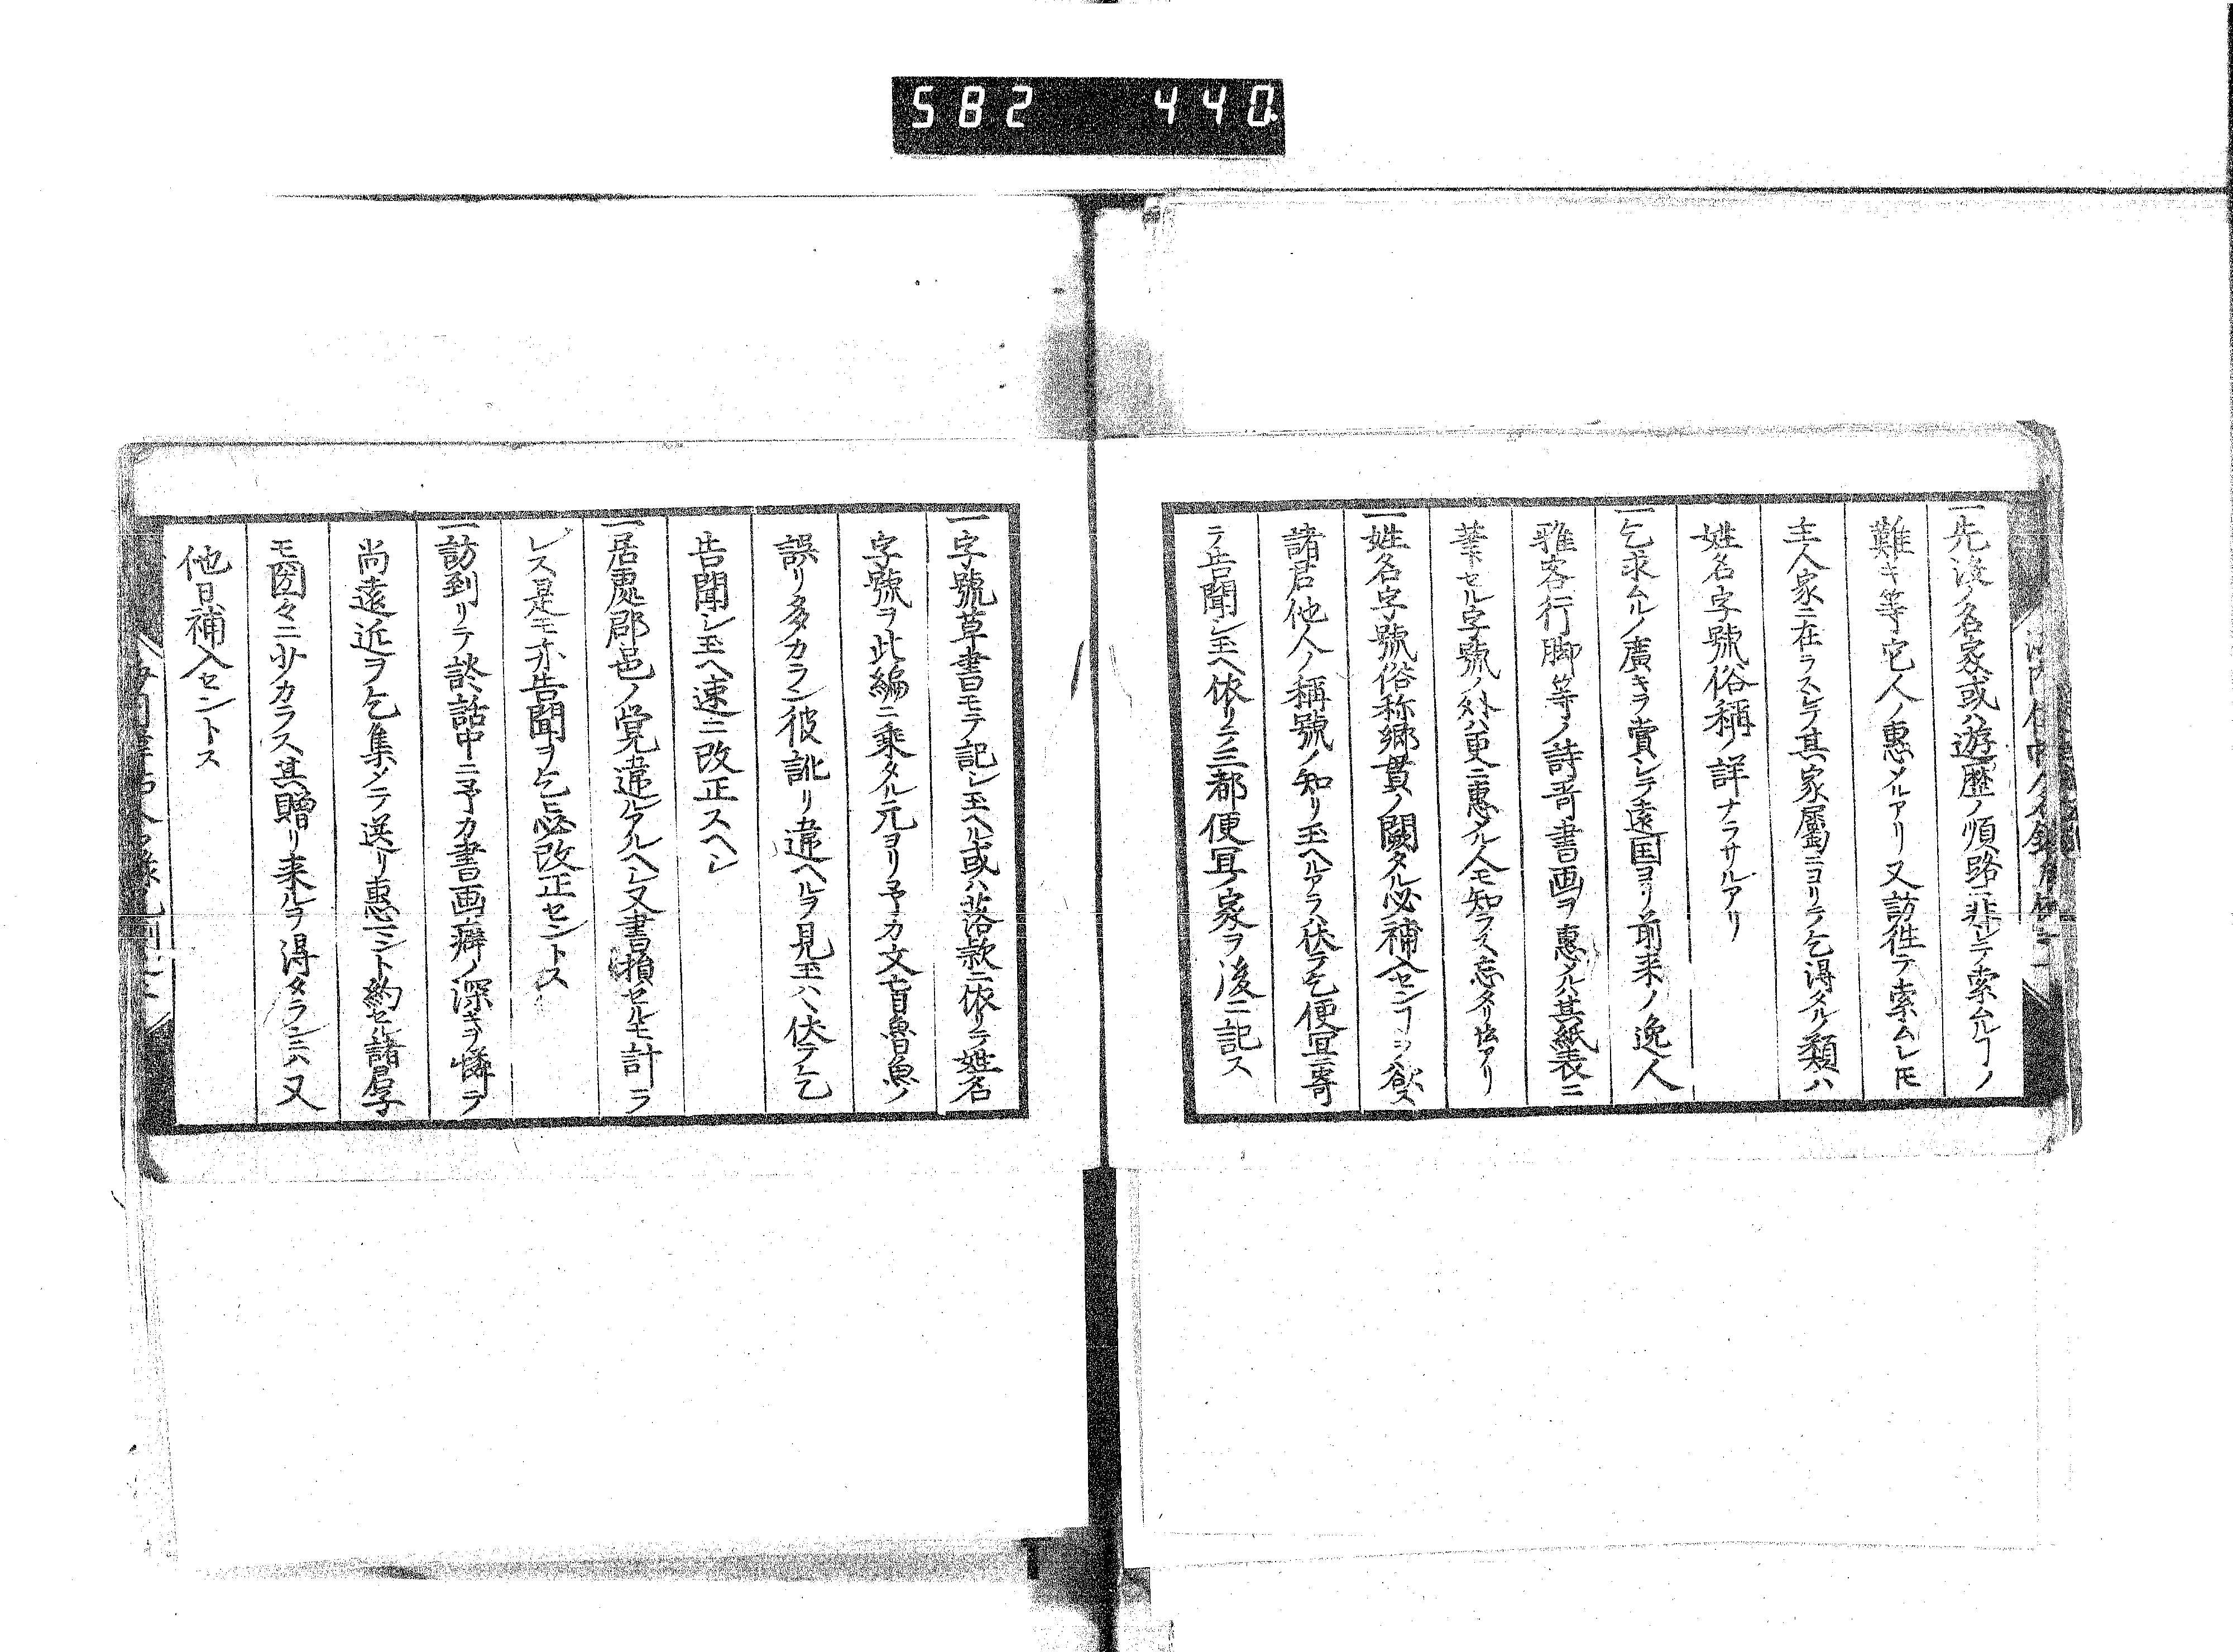 582 440
一先沒ノ名家或ハ遊歴ノ順路ニ非シテ索ムルヿノ
難キ等宅人ノ惠メルアリ又訪往テ索ムレ𪜈
主人家ニ在ラスシテ其家屬ニヨリテ乞得タルノ類ハ
姓名字號俗稱ノ詳ナラサルアリ
一乞求ムルノ廣キヲ賞シテ遠国ヨリ前来ノ逸人
雅客行脚等ノ詩哥書画ヲ惠メルハ其紙表ニ
筆下セル字號ノ外ハ更ニ惠メル人モ知ラス忘タリ
一姓名字號俗称郷貫ノ闕タル必補入センヿヲ欲ス
諸君他人ノ稱號ノ知リ玉ヘルアラハ伏テ乞便宜ニ寄
テ告聞シ玉ヘ依リテ三都便宜ノ家ヲ後ニ記ス
一字號草書モテ記シ玉ヘル或ハ落款ニ依リテ姓名
字號ヲ此編ニ乗タル元ヨリ予カ文盲魯魚ノ
誤リ多カラン彼訛リ違ヘルヲ見玉ハヽ伏テ乞
告聞シ玉ヘ速ニ改正スヘシ
一居處郡邑ノ覚違ルアルヘシ又書損セルモ計ラ
レス是モ亦告聞ヲ乞必改正セントス
一訪到リテ談話中ニ予カ書画癖ノ深キヲ憐ラ
尚遠近ヲ乞集メテ送リ惠ミント約セル諸君子
モ國々ニ少カラス其贈リ来ルヲ得タランニハ又
他日補入セントス